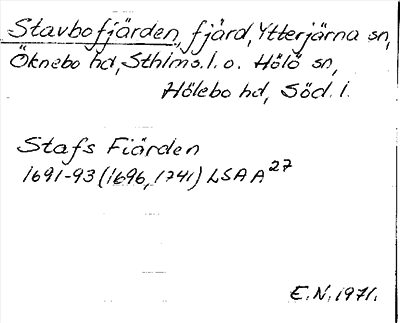 Stavbofjärden, fjärd, Ytterjärna sn,
Öknebo hd, Sthlms. l. o. Hölö sn,
Hölebo hd, Söd. l.
Stafs Fiärden
1691-93 (1696, 1741) LSA A 27
E.N. 1971.